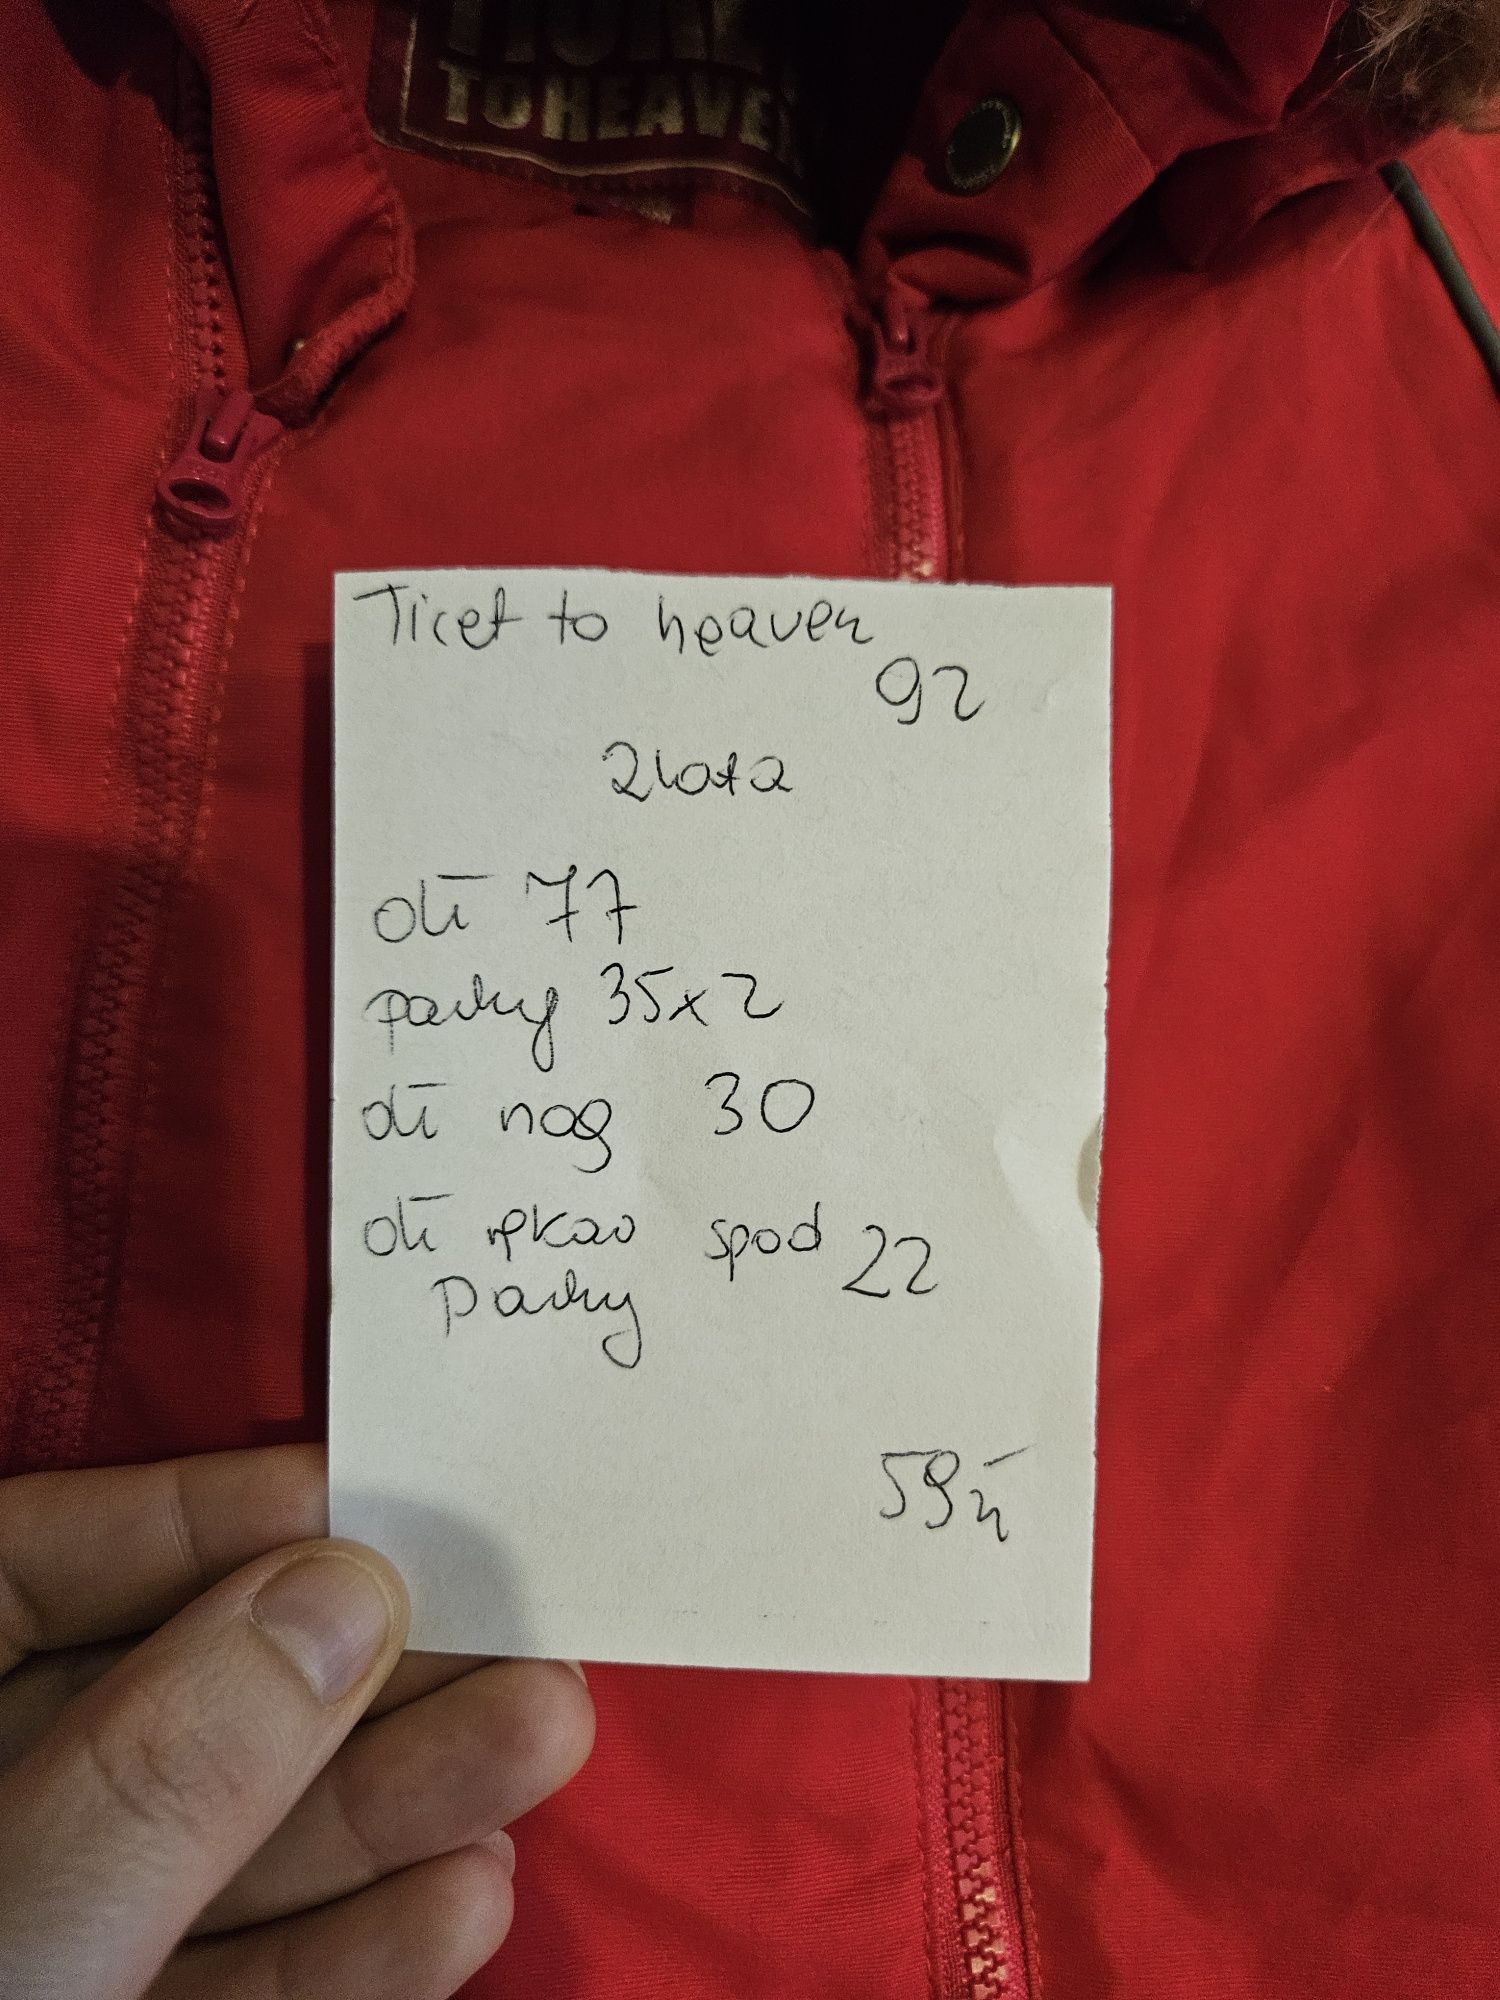 TOHEAVE
Ticet to heaven
92
2 lata
dł 77
pachy 35x2
dł nog 30
dł rękaw spod 22
pachy
59zł